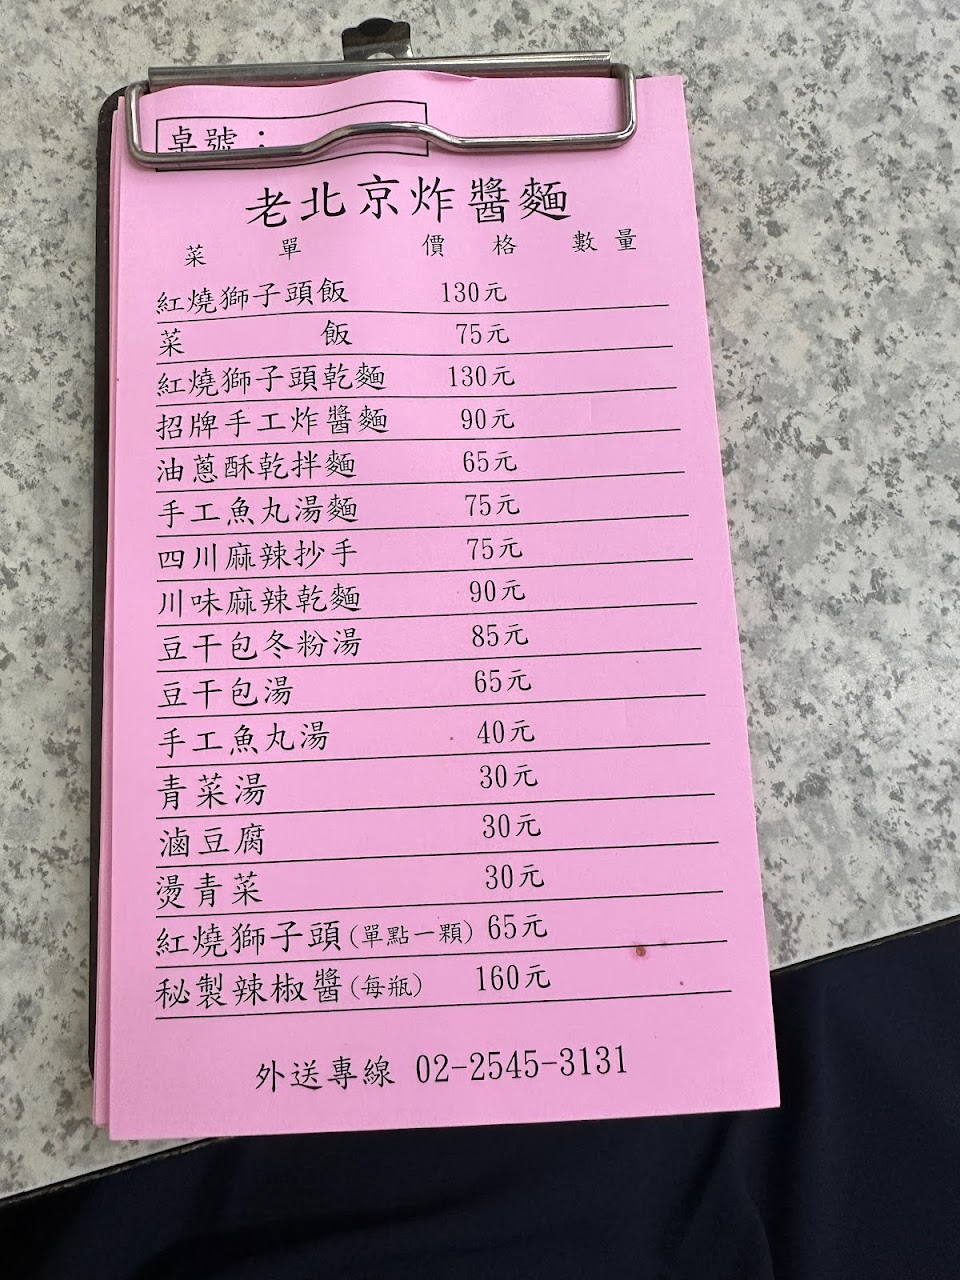 桌號：
老北京炸醬麵
菜單 價格 數量
紅燒獅子頭飯 130元
菜飯 75元
紅燒獅子頭乾麵 130元
招牌手工炸醬麵 90元
油蔥酥乾拌麵 65元
手工魚丸湯麵 75元
四川麻辣抄手 75元
川味麻辣乾麵 90元
豆干包冬粉湯 85元
豆干包湯 65元
手工魚丸湯 40元
青菜湯 30元
滷豆腐 30元
燙青菜 30元
紅燒獅子頭(單點一顆) 65元
秘製辣椒醬(每瓶) 160元
外送專線 02-2545-3131